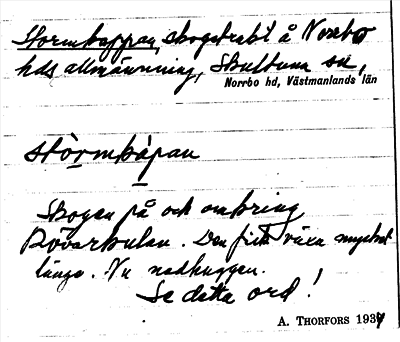 Stormkappan, skogstrakt å Norrbo
hds allmänning, Skultuna sn,
Norrbo hd, Västmanlands län
stòrmkápan
Skogen på och omkring
Rövarkulan. Den fick växa mycket
länge. Nu nedhuggen.
Se detta ord!
A. THORFORS 1934